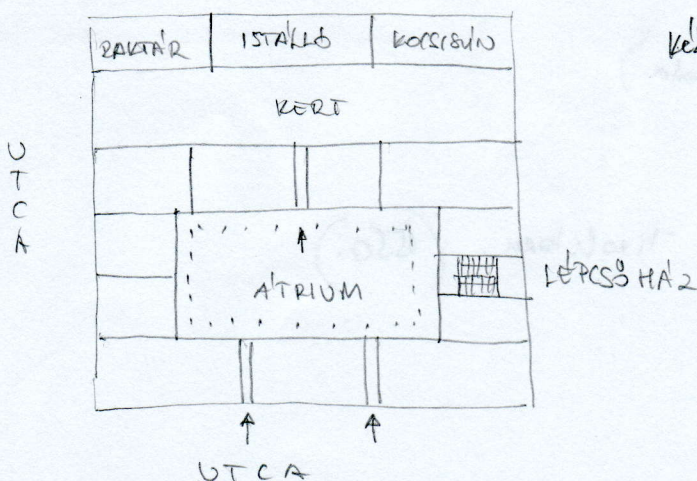 RAKTÁR ISTÁLLÓ KOCSISZÍN
KERT
UTCA
ÁTRIUM
LÉPCSŐHÁZ
UTCA